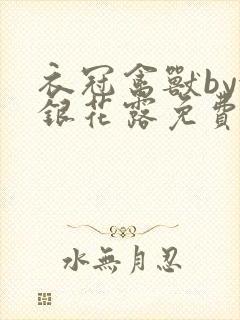 衣冠禽獸by
銀花露免費
水無月忍